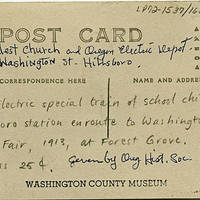 LP72-1537/16
POST CARD
dest Church and Oregon Electric Depot.
Washington St. Hillsboro,
CORRESPONDENCE HERE
NAME AND ADDRES
Electric special train of school chi
oro station enroute to Washingto
Fair, 1913, at Forest Grove.
25¢. given by Oreg Hist. Soc.
WASHINGTON COUNTY MUSEUM